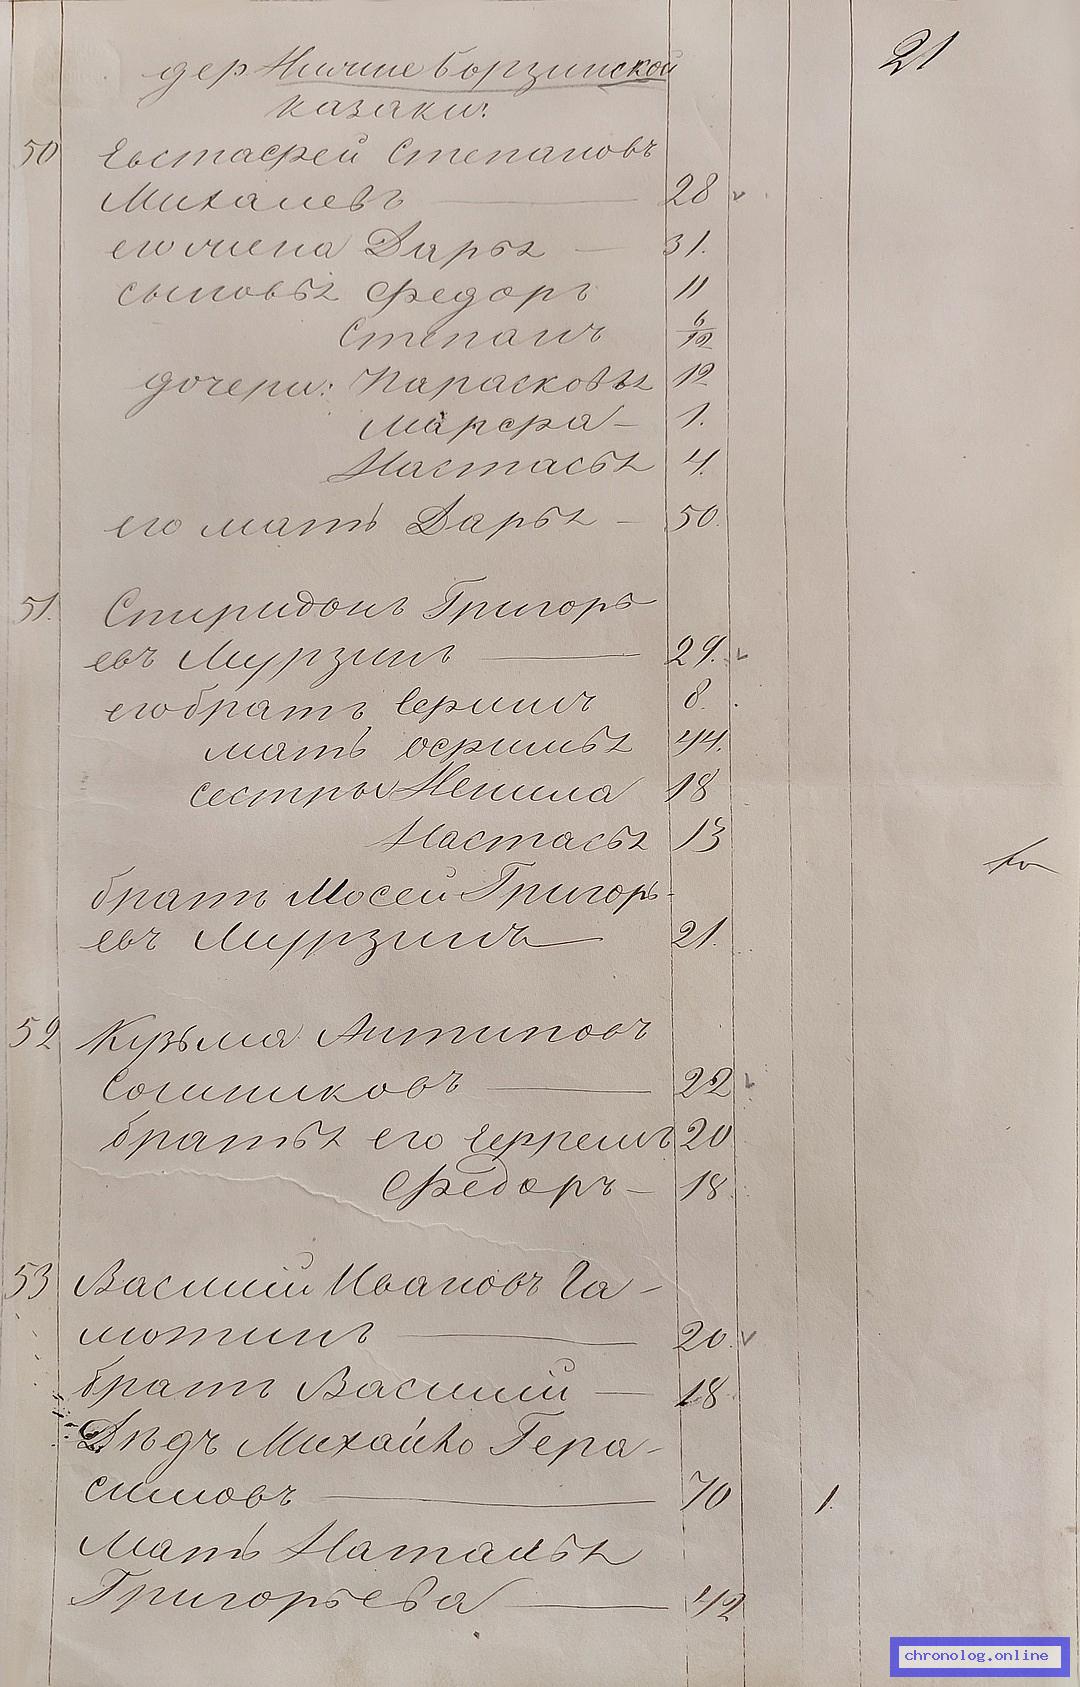 21
дер Нижне борзинской
казаки:
50 Евстафей Степановъ
Михалевъ — 28
его жена Дарья — 31.
сыновья Федоръ 11
Степанъ 6/12
дочери: Парасковья 12
Марфа — 1.
Настасья 4.
его мать Дарья — 50.
51. Спиридонъ Григорь
евъ Мурзинъ — 29.
его братъ 8.
мать Офимья 44.
сестры Ненила 18
Настасья 13
братъ Мосей Григорь-
евъ Мурзинъ — 21.
52 Кузьма Антиповъ
— 22
братья его Ефремъ 20
Федоръ — 18
53 Василий Ивановъ Га-
мотинъ — 20.
братъ Василий — 18
Дѣдъ Михайло Гера-
симовъ — 70 1.
Мать Наталья
Григорьева — 42
chronolog.online